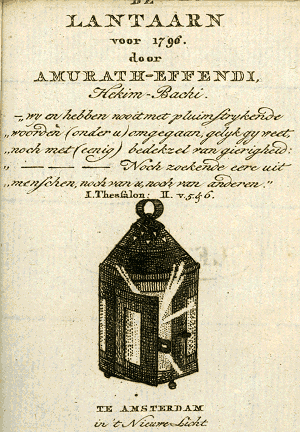 DE
LANTAARN
voor 1796.
door
AMURATH-EFFENDI,
Hekim-Bachi.
„wy en hebben nooit met pluimstrykende
„woorden (onder u) omgegaan, gelyk gy weet,
„noch met (eenig) bedekzel van gierigheid:
„ — — — — Noch zoekende eere uit
„menschen, noch van u, noch van anderen."
I. Thessalon: II. v. 5 & 6.
TE AMSTERDAM
in 't Nieuwe-Licht